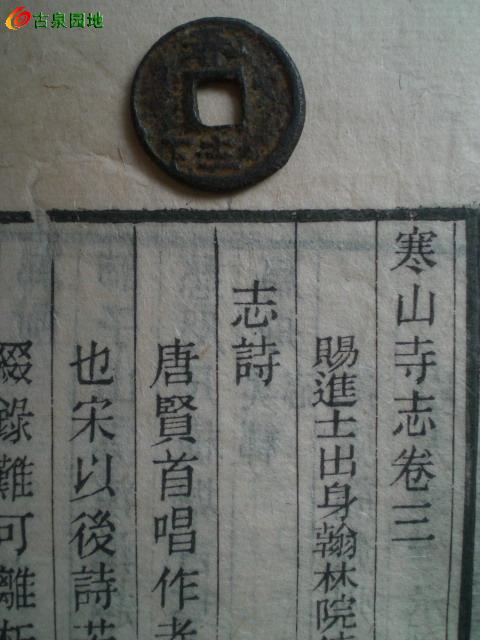 古泉园地
寒山寺志卷三
賜進士出身翰林院
志詩
唐賢首唱作者
也宋以後詩
綴錄難可離